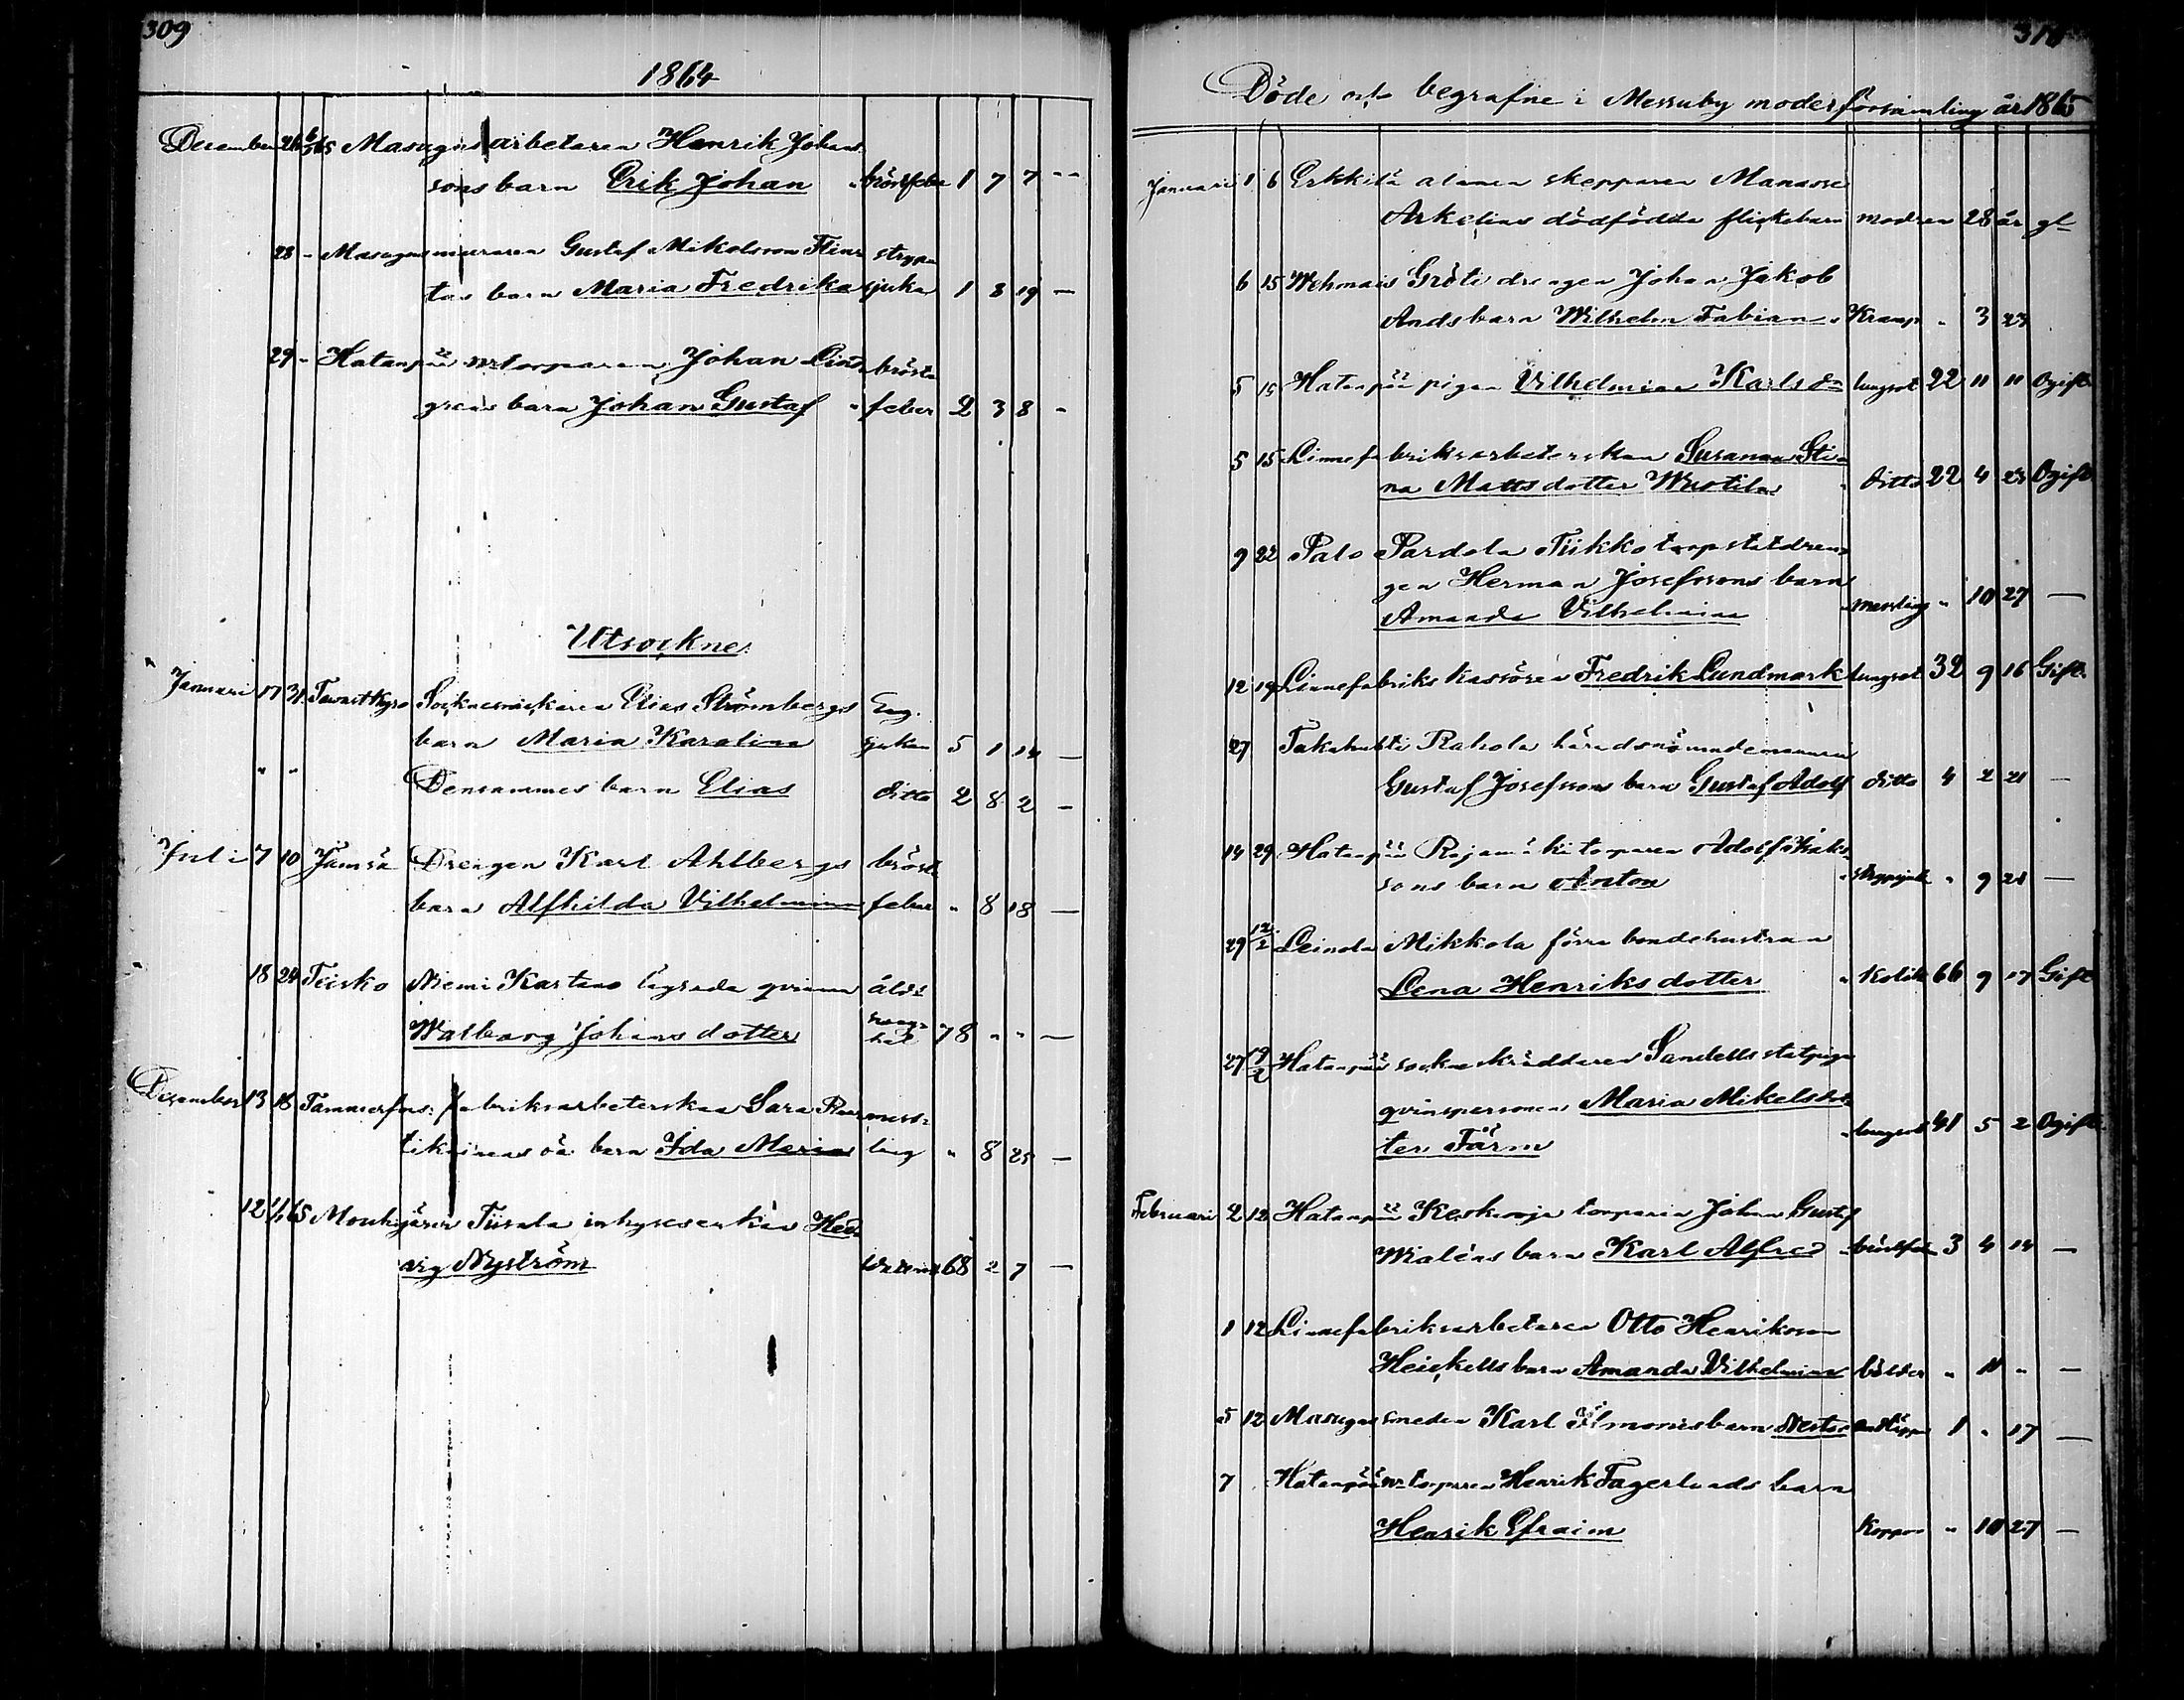 309
1864
December 26 6/1 65 Masugnsarbetaren Henrik Johans
sons barn Erik Johan bröstfeber 1 7 7 --
28 - Masugnsmuraren Gustaf Mikelsson Flink stryp
tas barn Maria Fredrika sjuka 1 8 19 -
29 - Hatanpää Johan Lind bröst
grens barn Johan Gustaf feber 2 3 8 -
Utsockne
Januari 17 31 Tavastkyro Sockensnickaren Elias Strömbergs Eng.
barn Maria Karolina sjukan 5 1 14 -
" " Densammes barn Elias ditto 2 8 2 -
Juli 7 10 Jämsä Drengen Karl Ahlbergs bröst
barn Alfhilda Vilhelmina feber " 8 18 -
18 24 Teisko Niemi Kartano legereda qvinnan ålder
Walborg Johansdotter 78 " " -
December 13 18 Tammerfors fabriksarbeterskan Sara mess-
oä barn Ida Maria ling " 8 25 -
12 1/1 65 Mouhijärvi Tiisala inhyseenkan Hed
vig Nyström 68 2 7 -
310
Döde och begrafne i Messuby moderförsamling år 1865
Januari 1 6 Erkkilä skepparen Manasse
Arkelins dödfödda flickebarn modren 28 år gl
6 15 Wehmais Gröti drengen Johan Jakob
Ands barn Wilhelm Fabian Kramp " 3 23
5 15 Hatanpää pigan Vilhelmina Karlsdr lungsot 22 11 11 Ogift
5 15 Linnefabriksarbeterskan Susanna Sti
na Mattsdotter Ditto 22 4 23 Ogift
9 22 Palo Pardola Tiikko torp statdren
gen Herman Josefssons barn
Amanda Vilhelmina messling " 10 27 -
12 19 Linnefabriks kassören Fredrik Lundmark lungsot 32 9 16 Gift
27 Takahuhti Rahola häradsnämndemannen
Gustaf Josefssons barn Gustaf Adolf ditto 4 2 21 -
14 29 Hatanpää Rajamäki torparen Adolf Isaks
sons barn Anton strypsjuk " 9 21 -
29 12/2 Leinola Mikkola förra bondehustrun
Lena Henriksdotter Kolik 66 9 17 Gift
27 19/2 Hatanpää sockneskräddaren Sandells statpiga
qvinspersonen Maria Mikelsdot
ter Färm lungsot 41 5 2 Ogift
Februari 2 12 Hatanpää Keskioja torparen Johan Gustaf
Wialéns barn Karl Alfred bröstfeber 3 4 14 -
1 12 Linnefabriksarbetaren Otto Henriksson
Heickells barn Amanda Vilhelmina bölder " 11 " -
5 12 Masugns smeden Karl Filmonis barn Nestor andtäppa 1 " 17 -
7 Hatanpää torparen Henrik Fagerlunds barn
Henrik Efraim Koppor " 10 27 -